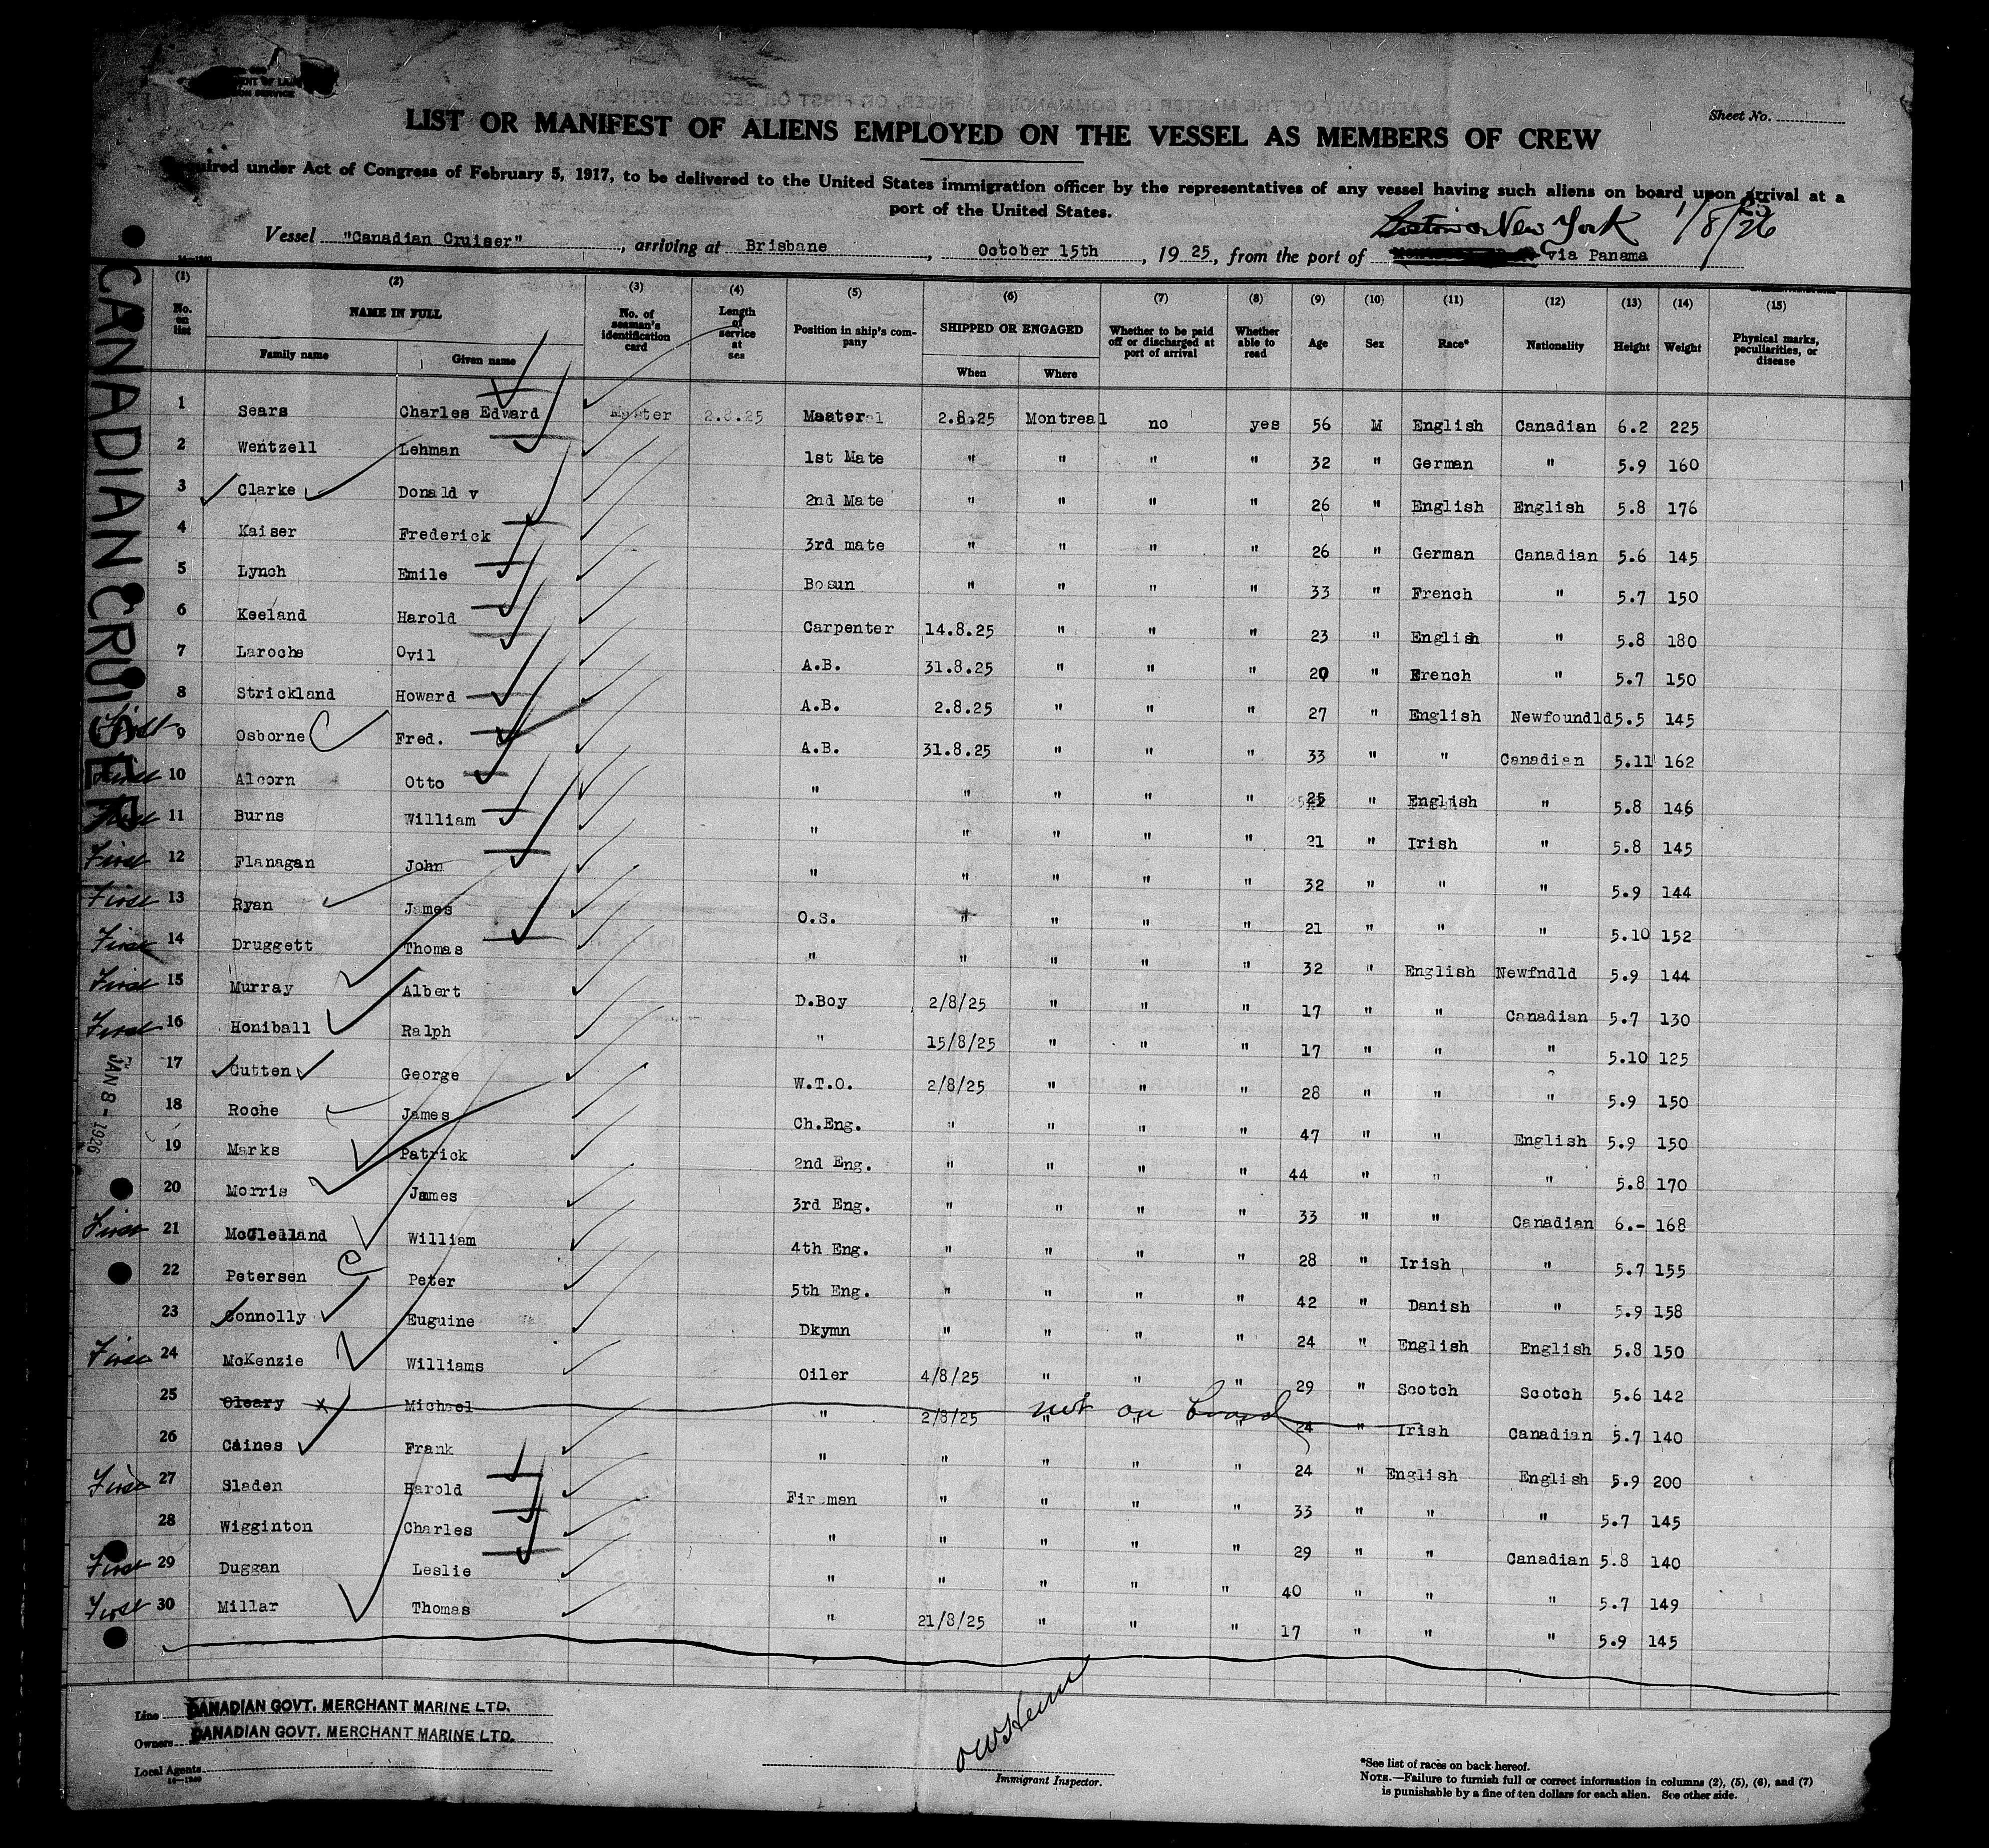 Sheet No.
LIST OR MANIFEST OF ALIENS EMPLOYED ON THE VESSEL AS MEMBERS OF CREW
under Act of Congress of February 5, 1917, to be delivered to the United States immigration officer by the representatives of any vessel having such aliens on board upon arrival at a
port of the United States.
New York 1/8/26
Vessel "Canadian Cruiser", arriving at Brisbane, October 15th, 1925, from the port of via Panama
CANADIAN CRUISER
(1) (2) (3) (4) (5) (6) (7) (8) (9) (10) (11) (12) (13) (14) (15)
No. on list NAME IN FULL No. of seaman's identification card Length of service at sea Position in ship's company SHIPPED OR ENGAGED Whether to be paid off or discharged at port of arrival Whether able to read Age Sex Race* Nationality Height Weight Physical marks, peculiarities, or disease
Family name Given name When Where
1 Sears Charles Edward Master 2.8.25 Master 2.8.25 Montreal no yes 56 M English Canadian 6.2 225
2 Wentzell Lehman 1st Mate " " " " 32 " German " 5.9 160
3 Clarke Donald v 2nd Mate " " " " 26 " English English 5.8 176
4 Kaiser Frederick 3rd mate " " " " 26 " German Canadian 5.6 145
5 Lynch Emile Bosun " " " " 33 " French " 5.7 150
6 Keeland Harold Carpenter 14.8.25 " " " 23 " English " 5.8 180
7 Laroche Ovil A.B. 31.8.25 " " " 20 " French " 5.7 150
8 Strickland Howard A.B. 2.8.25 " " " 27 " English Newfoundld 5.5 145
First 9 Osborne Fred. A.B. 31.8.25 " " " 33 " " Canadian 5.11 162
First 10 Alcorn Otto " " " " " 25 " English " 5.8 146
First 11 Burns William " " " " " 21 " Irish " 5.8 145
First 12 Flanagan John " " " " " 32 " " " 5.9 144
First 13 Ryan James O.S. " " " " 21 " " " 5.10 152
First 14 Druggett Thomas " " " " " 32 " English Newfndld 5.9 144
First 15 Murray Albert D.Boy 2/8/25 " " " 17 " " Canadian 5.7 130
First 16 Honiball Ralph " 15/8/25 " " " 17 " " " 5.10 125
17 Cutten George W.T.O. 2/8/25 " " " 28 " " " 5.9 150
JAN 8 - 1926
18 Roche James Ch.Eng. " " " " 47 " " English 5.9 150
19 Marks Patrick 2nd Eng. " " " " 44 " " " 5.8 170
20 Morris James 3rd Eng. " " " " 33 " " Canadian 6.- 168
First 21 McClelland William 4th Eng. " " " " 28 " Irish " 5.7 155
22 Petersen Peter 5th Eng. " " " " 42 " Danish " 5.9 158
23 Connolly Euguine Dkymn " " " " 24 " English English 5.8 150
First 24 McKenzie Williams Oiler 4/8/25 " " " 29 " Scotch Scotch 5.6 142
25 Oleary x Michael " 2/8/25 " " " 24 " Irish Canadian 5.7 140
not on board
26 Caines Frank " " " " " 24 " English English 5.9 200
First 27 Sladen Harold Fireman " " " " 33 " " " 5.7 145
28 Wigginton Charles " " " " " 29 " " Canadian 5.8 140
First 29 Duggan Leslie " " " " " 40 " " " 5.7 149
First 30 Millar Thomas " 21/8/25 " " " 17 " " " 5.9 145
Line CANADIAN GOVT. MERCHANT MARINE LTD.
Owners CANADIAN GOVT. MERCHANT MARINE LTD.
Local Agents
Immigrant Inspector.
*See list of races on back hereof.
NOTE.—Failure to furnish full or correct information in columns (2), (5), (6), and (7)
is punishable by a fine of ten dollars for each alien. See other side.